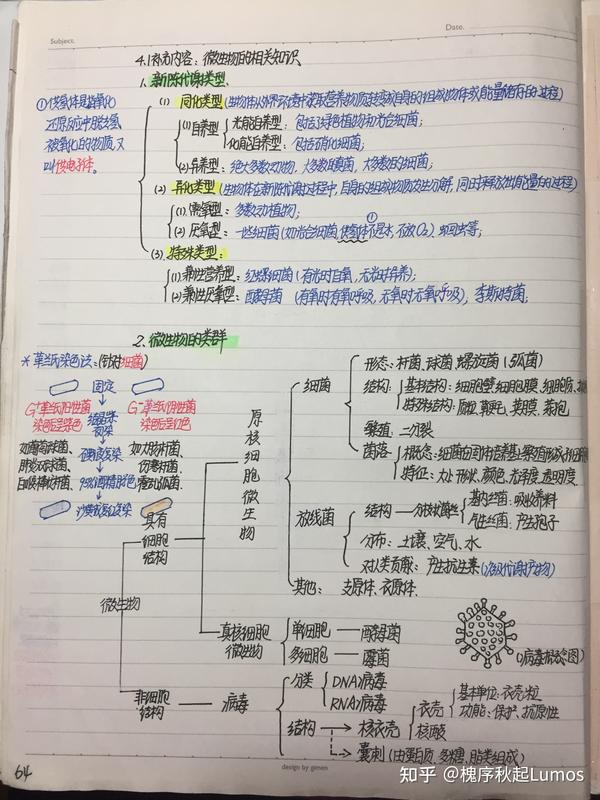 Subject.
Date.
4.1 补充内容：微生物的相关知识
1. 新陈代谢类型
(1) 同化类型 (生物体从外界环境中获取营养物质转变成自身的组成物质或能量储存的过程)
(1)自养型
光能自养型：包括绿色植物和光合细菌；
化能自养型：包括硝化细菌；
(2).异养：绝大多数动物，大多数真菌，大多数的细菌；
(2) 异化类型 (生物体在新陈代谢过程中，自身的组成物质发生分解，同时释放出能量的过程)
(1).需氧型：多数动植物；
(2).厌氧型：一些细菌 (如光合细菌，供氢体①不是水，不放O₂)
(3) 特殊类型：
(1).兼性营养型：红螺细菌 (有光时自养，无光时异养)；
(2).兼性厌氧型：酵母菌 (有氧时有氧呼吸，无氧时无氧呼吸)，李斯特菌；
①供氢体是指氧化
还原反应中脱去氢
被氧化的物质，又
叫供电子体。
2. 微生物的类群
* 革兰氏染色法：(针对细菌)
固定
G⁺革兰氏阳性菌
染色后呈紫色
结晶紫
初染
G⁻革兰氏阴性菌
染色后呈红色
如葡萄球菌、
肺炎双球菌、
白喉棒状杆菌
碘液媒染
95%酒精脱色
沙黄或复红复染
如大肠杆菌、
伤寒杆菌、
霍乱弧菌
微生物
具有
细胞
结构
原核细胞微生物
细菌
形态：杆菌、球菌、螺旋菌 (弧菌)
结构：
基本结构：细胞壁、细胞膜、细胞质、
特殊结构：质粒、鞭毛、荚膜、芽孢
繁殖：二分裂
菌落
概念：细菌在固体培养基上繁殖形成
特征：大小、形状、颜色、光泽度、透明度.
放线菌
结构——分枝状菌丝
基内丝菌：吸收养料
气生丝菌：产生孢子
分布：土壤、空气、水
对人类贡献：产生抗生素 (次级代谢产物)
其他：支原体、衣原体.
真核细胞
微生物
单细胞——酵母菌
多细胞——霉菌
(病毒概念图)
非细胞
结构
病毒
分类
DNA病毒
RNA病毒
结构
核衣壳
衣壳
基本单位：衣壳粒
功能：保护、抗原性
核酸
囊刺 (由蛋白质、多糖、脂类组成)
64
design by gimen
知乎 @槐序秋起Lumos